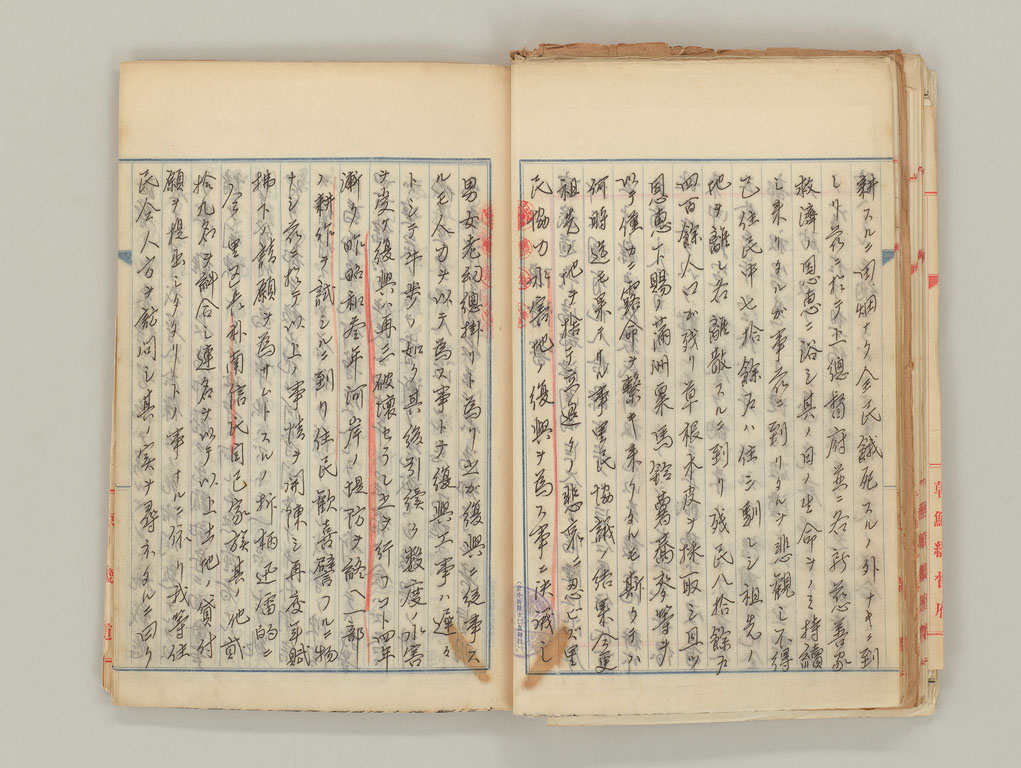 耕スルニ田畑ナク全民餓死スルノ外ナキニ到
レリ茲ニ於テ上總督府並ニ各新慈善家
救濟ノ恩惠ニ浴シ其ノ日ノ生命ヲノミ持續
シ来リタルガ事茲ニ到リタルヲ悲観シ不得
已住民中七拾餘戸ハ住ミ馴レシ祖先ノ
地ヲ離レ各離散スルニ到リ残民八拾餘戸
四百餘人口が残リ草根木皮ヲ採取シ且ツ
恩惠下賜ノ滿洲粟馬鈴薯蕎麥等ヲ
以テ僅カニ露命ヲ繋ギ来リタルモ斯クテハ
何時迄モ果テズ事里民協議ノ結果今更
祖先ノ地ヲ捨テ去ルノ悲哀ニ忍ビズ里
民協力水害地ノ復興ヲ為ス事ニ決議シ
男女老幼總掛リトナリ之ガ復興ニ従事ス
ルモ人力ヲ以テ為ス事トテ復興工事ハ遅々
トシテ牛歩ノ如ク其後引續ク數度ノ水害
ヲ受ケ復興ハ再三破壊セラレ之ヲ行フコト四年
漸ク昨昭和叁年河岸ノ堤防ヲ終ヘ一部
ノ耕作ヲ試ミルニ到リ住民歡喜譬フルニ物
ナシ茲ニ於テ以上ノ事情ヲ開陳シ再度年賦
拂下ノ請願ヲ為サムトスルノ折柄迅雷的ニ
今里區長朴南信氏自己家族其ノ他貳
拾九名ヲ糾合シ連名ヲ以テ以上土地ノ貸付
願ヲ提出シタリトノ事ナルニ依リ我等住
民全人方ヲ訪問シ其ノ実ヲ尋ネタルニ曰ク
朝鮮總督府
道